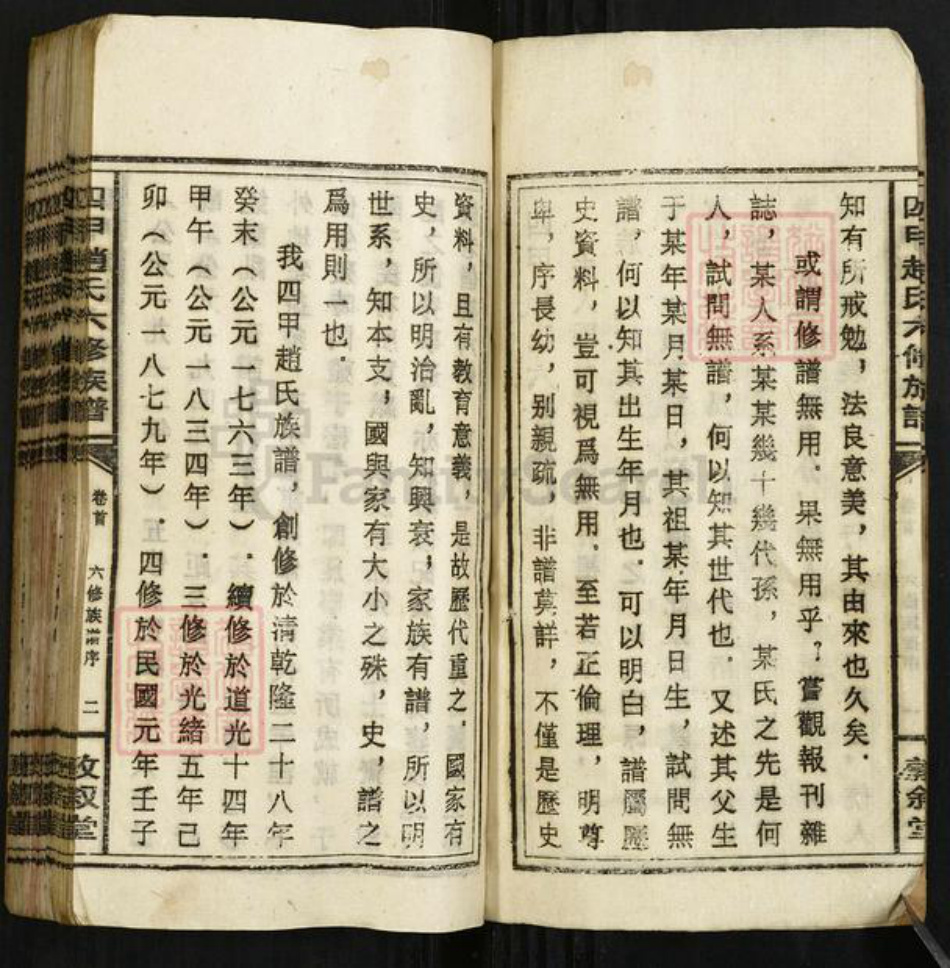 知有所戒勉，法良意美，其由來也久矣．
或謂修譜無用．果無用乎？嘗觀報刊雜
誌，某人系某某幾十幾代孫，某氏之先是何
人，試問無譜，何以知其世代也．又述其父生
于某年某月某日，其祖某年月日生，試問無
譜，何以知其出生年月也．可以明白，譜屬歷
史資料，豈可視爲無用．至若正倫理，明尊
卑，序長幼，别親疏，非譜莫詳，不僅是歷史
資料，且有教育意義，是故歷代重之．國家有
史，所以明治亂，知興衰，家族有譜，所以明
世系，知本支，國與家有大小之殊，史，譜之
爲用則一也．
我四甲趙氏族譜，創修於清乾隆二十八年
癸未（公元一七六三年）．續修於道光十四年
甲午（公元一八三四年）．三修於光緒五年己
卯（公元一八七九年）．四修於民國元年壬子
四甲趙氏六修族譜
卷首
六修族譜序
二
FamilySearch